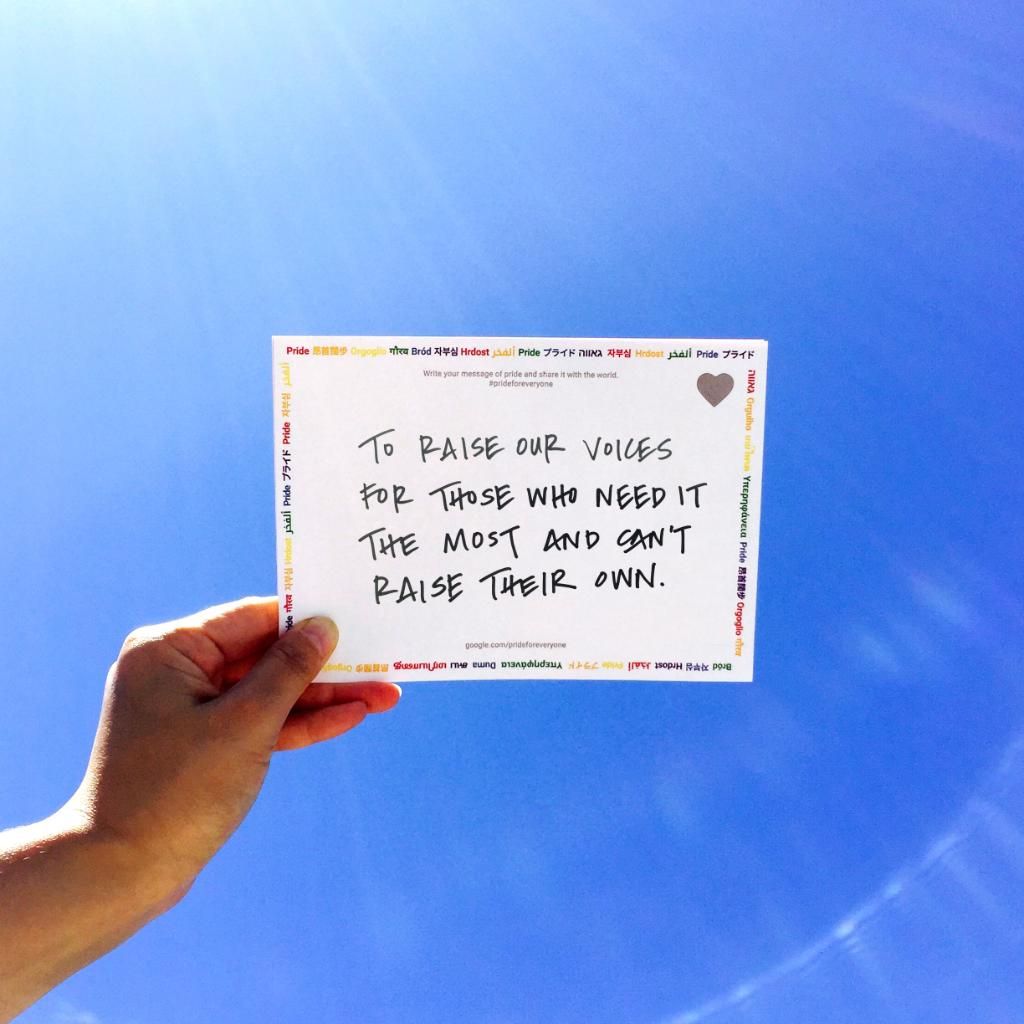 Pride 昂首闊步 Orgoglio गौरव Bród 자부심 Hrdost ألفخر Pride プライド גאווה 자부심 Hrdost ألفخر Pride プライド
Write your message of pride and share it with the world.
#prideforeveryone
TO RAISE OUR VOICES
FOR THOSE WHO NEED IT
THE MOST AND CAN'T
RAISE THEIR OWN.
google.com/prideforeveryone
גאווה Orgulho Υπερηφάνεια Pride 昂首闊步 Orgoglio गौरव
Bród 자부심 Hrdost ألفخر Pride プライド Υπερηφάνεια Duma 昂首闊步 Orgoglio
गौरव Hrdost 자부심 ألفخر Pride プライド Pride 자부심 ألفخر